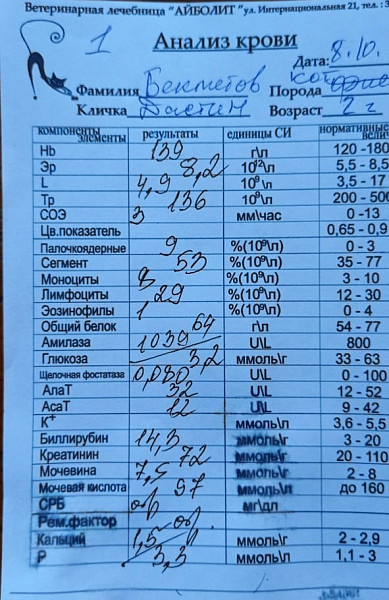 Ветеринарная лечебница "АЙБОЛИТ" ул. Интернациональная 21, тел.: 3
1 Анализ крови
Дата: 8.10.
Фамилия Бекметов Порода
Кличка Дастин Возраст 2 г
компоненты элементы результаты единицы СИ нормативные
Hb 139 г\л 120 -180
Эр 8,2 10¹²\л 5,5 - 8,5
L 4,9 10⁹\л 3,5 - 17
Тр 136 10⁹\л 200 - 500
СОЭ 3 мм\час 0 -13
Цв.показатель 0,65 - 0,9
Палочкоядерные 9 %(10⁹\л) 0 - 3
Сегмент 53 %(10⁹\л) 35 - 77
Моноциты 8 %(10⁹\л) 3 - 10
Лимфоциты 29 %(10⁹\л) 12 - 30
Эозинофилы 1 %(10⁹\л) 0 - 4
Общий белок 64 г\л 54 - 77
Амилаза 1039 U\L 800
Глюкоза 3,2 ммоль\г 33 - 63
Щелочная фостатаза 0,080 U\L 0 - 100
АлаТ 32 U\L 12 - 52
АсаТ 12 U\L 9 - 42
К⁺ ммоль\л 3,6 - 5,5
Биллирубин 14,3 ммоль\г 3 - 20
Креатинин 72 ммоль\г 20 - 110
Мочевина 7,5 ммоль\г 2 - 8
Мочевая кислота 97 ммоль\л до 160
СРБ отр мг\дл
Рем.фактор отр
Кальций 1,5 ммоль\г 2 - 2,9
Р 3,3 ммоль\л 1,1 - 3